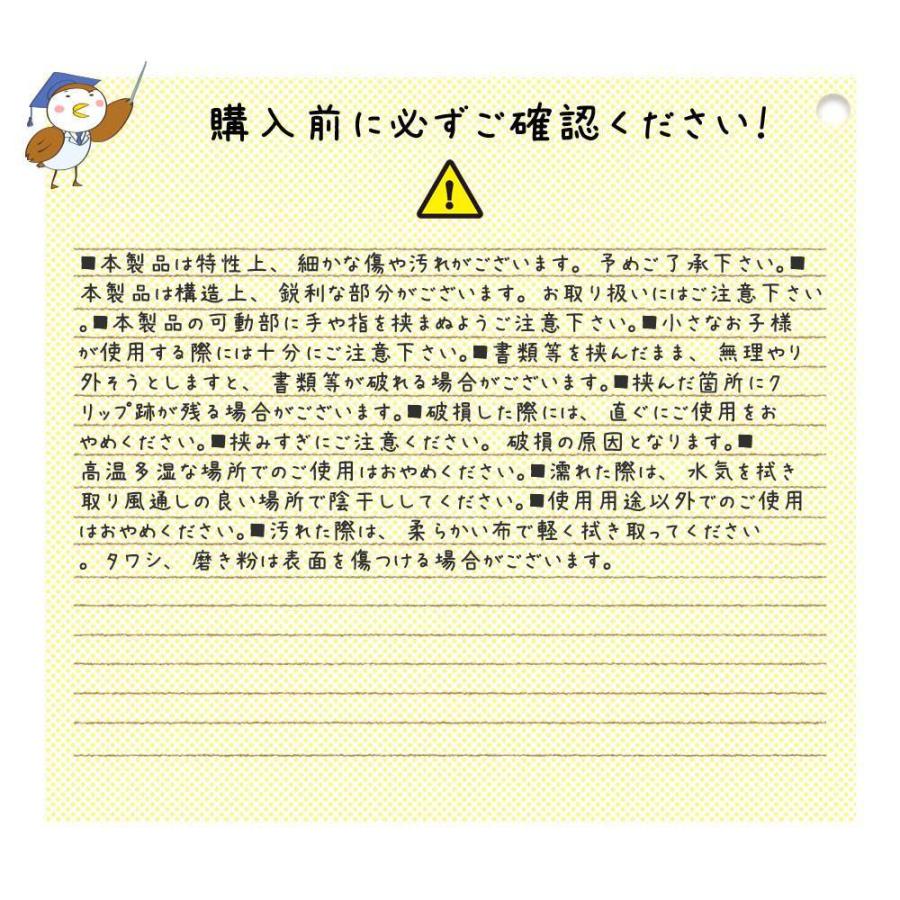 購入前に必ずご確認ください!
■本製品は特性上、 細かな傷や汚れがございます。 予めご了承下さい。■
本製品は構造上、 鋭利な部分がございます。 お取り扱いにはご注意下さい
。■本製品の可動部に手や指を挟まぬようご注意下さい。■小さなお子様
が使用する際には十分にご注意下さい。■書類等を挟んだまま、 無理やり
外そうとしますと、 書類等が破れる場合がございます。■挟んだ箇所にク
リップ跡が残る場合がございます。■破損した際には、 直ぐにご使用をお
やめください。■挟みすぎにご注意ください。 破損の原因となります。■
高温多湿な場所でのご使用はおやめください。■濡れた際は、 水気を拭き
取り風通しの良い場所で陰干ししてください。■使用用途以外でのご使用
はおやめください。■汚れた際は、 柔らかい布で軽く拭き取ってください
。 タワシ、 磨き粉は表面を傷つける場合がございます。